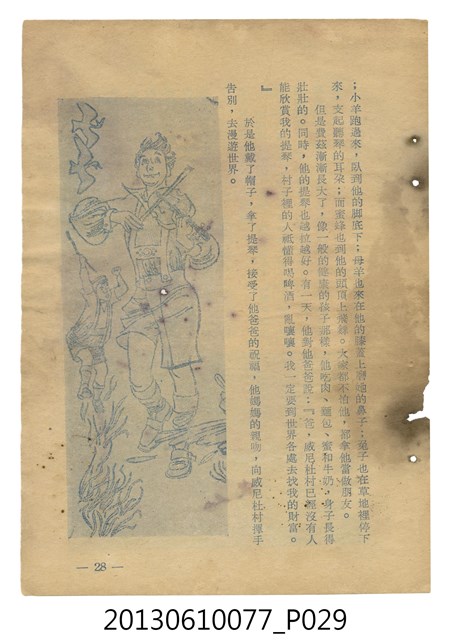 ；小羊跑過來，臥到他的脚底下；母羊也來在他的膝蓋上擦她的鼻子；兔子也在草地裡停下
來，支起聽琴的耳朶；而蜜蜂也到他的頭頂上飛舞。大家都不怕他，都拿他當做朋友。
但是費茲漸漸長大了，像一般的健康的孩子那樣，他吃肉、麵包、蜜和牛奶，身子長得
壯壯的。同時，他的提琴也越拉越好。有一天，他對他爸爸說：『爸，威尼杜村已經沒有人
能欣賞我的提琴，村子裡的人祗懂得喝啤酒，亂嚷嚷。我一定要到世界各處去找我的財富。
』
於是他戴了帽子，拿了提琴，接受了他爸爸的祝福，他媽媽的親吻，向威尼杜村揮手
告別，去漫遊世界。
— 28 —
20130610077_P029